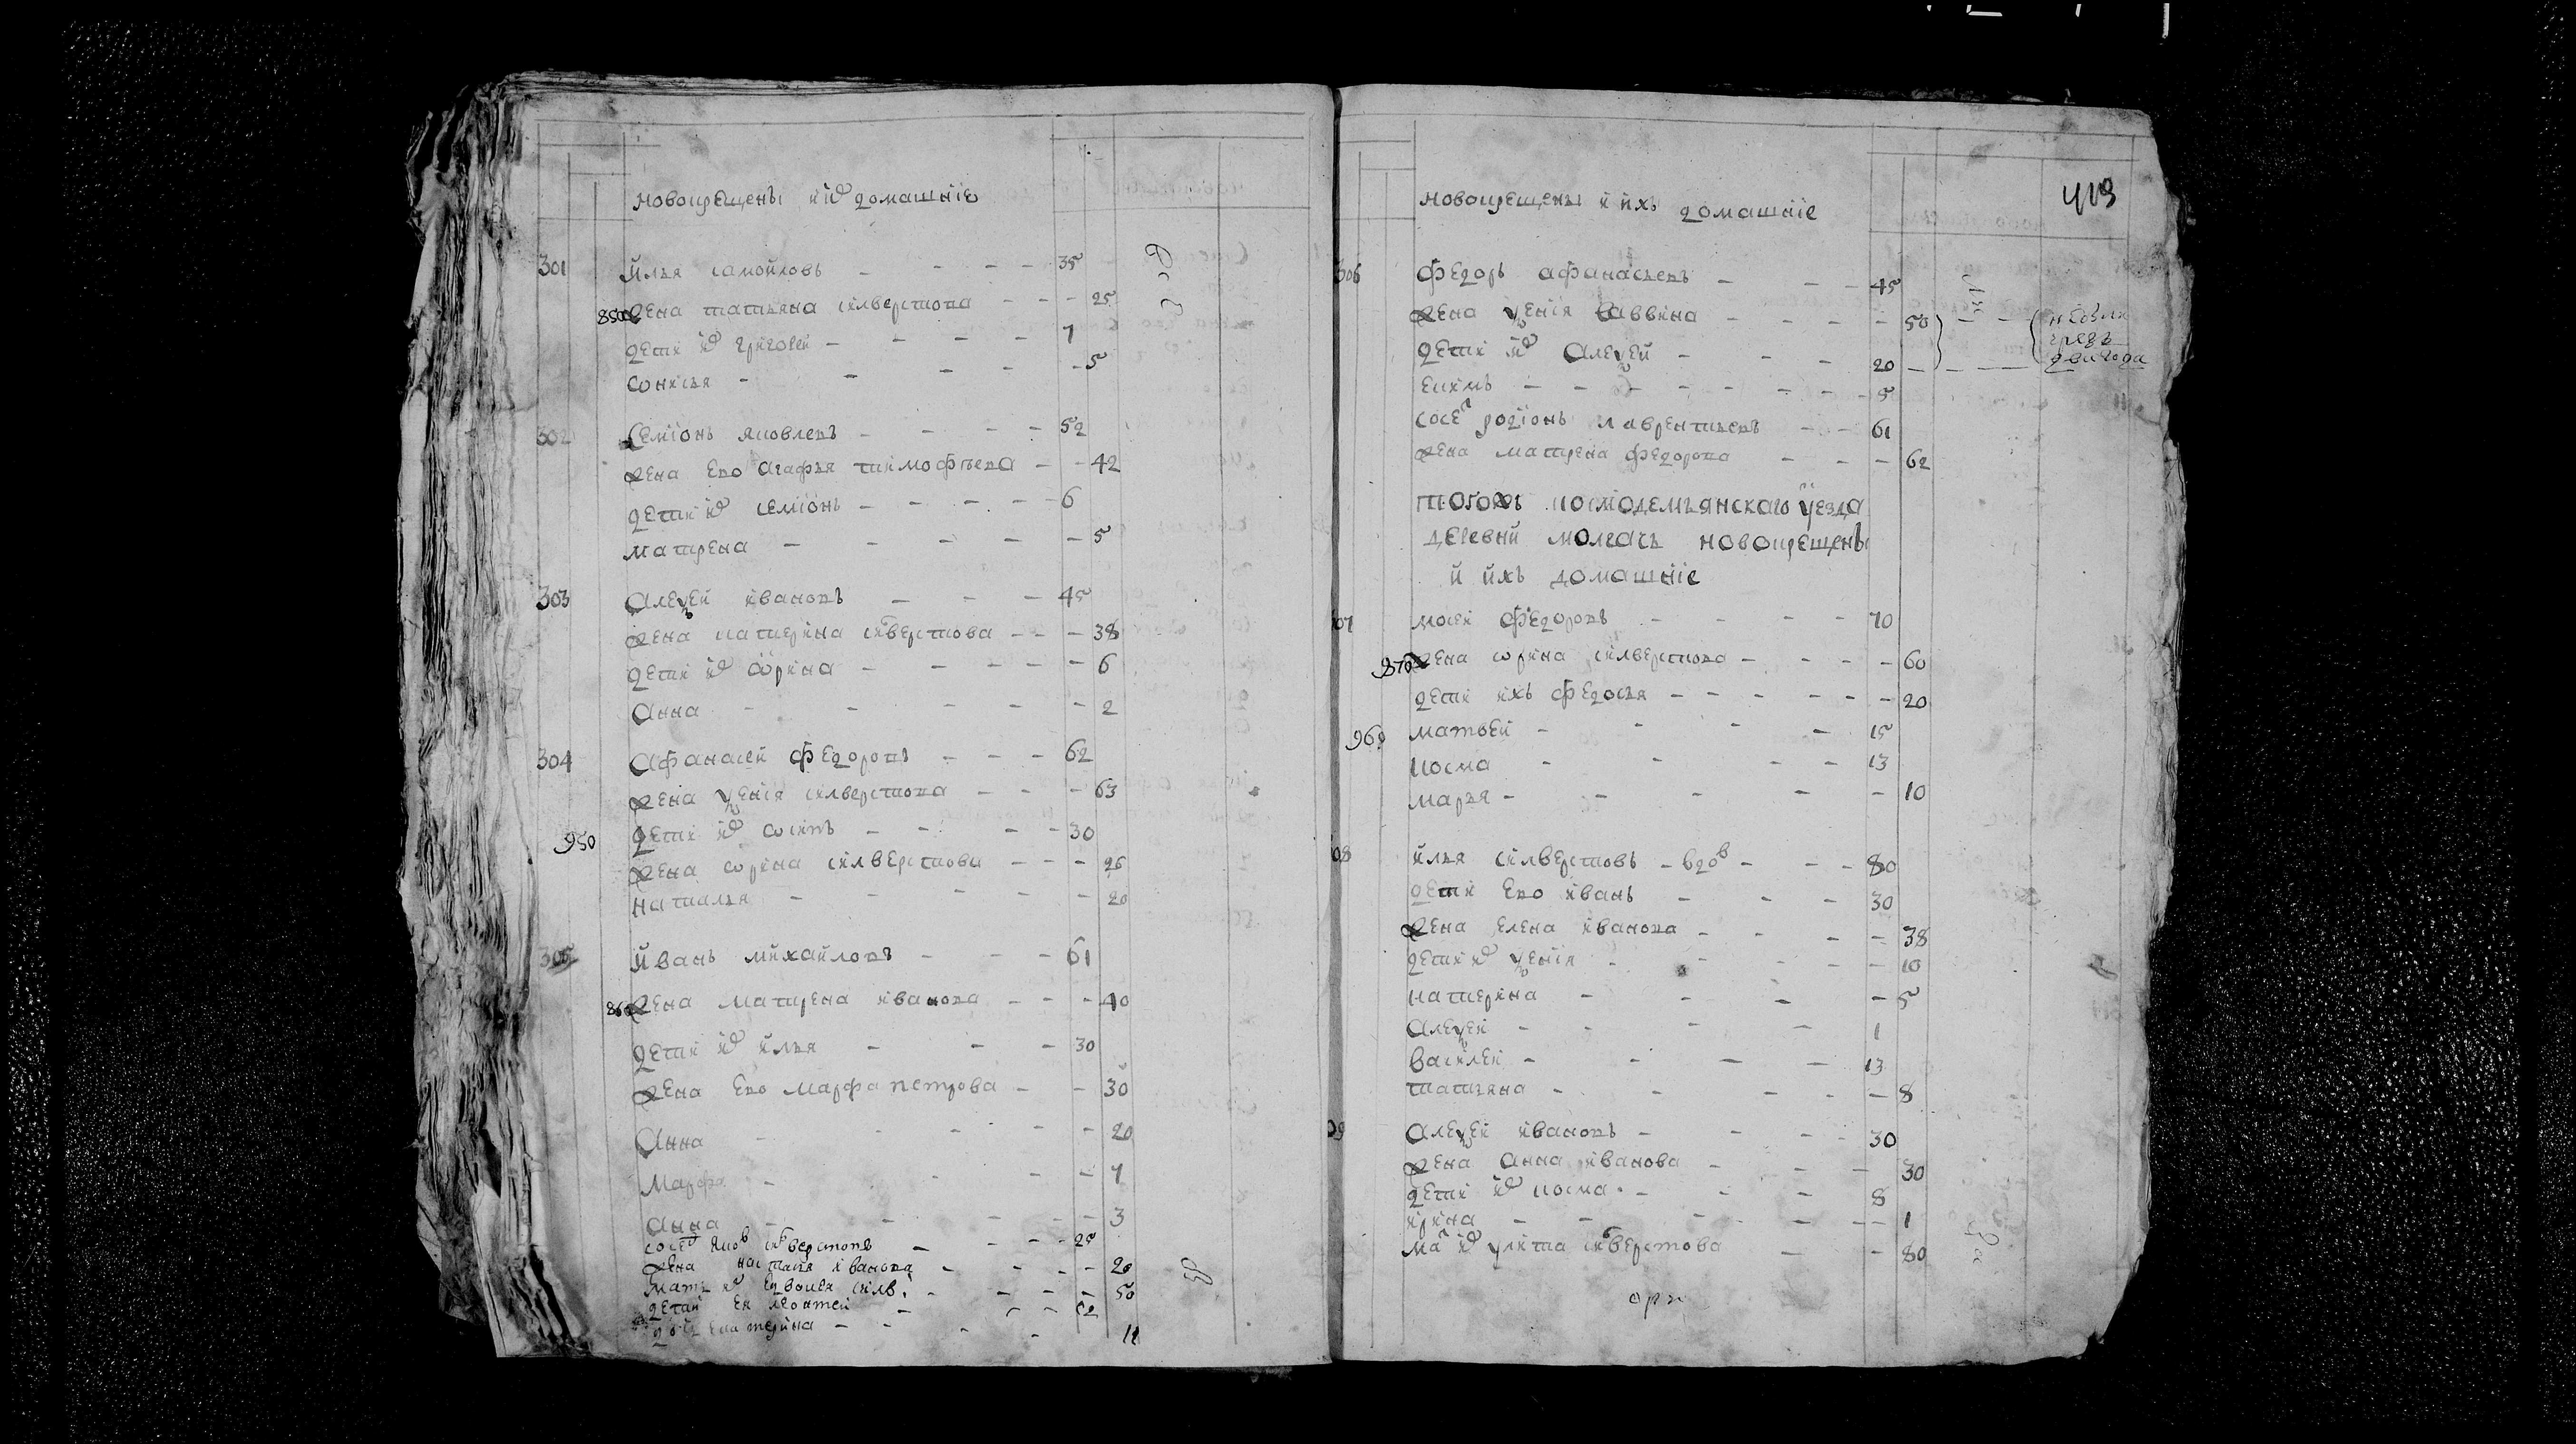 новокрещены и их домашние
301 Илья самойловъ - - - - 35
850 жена татьяна силверстова - - - 25
дети их григорей - - - - 7
софья - - - - - 5
302 Семионъ яковлевъ - - - - 52
жена ево агафья тимофѣева - - 42
дети их семионъ - - - - 6
матрена - - - - - 5
303 Алеѯей ивановъ - - - 45
жена катерина силверстова - - - 38
дети их ѡрина - - - - - 6
Анна - - - - - 2
304 Афанасей федоровъ - - - 62
жена ѯения силверстова - - - 63
950 дети их ѡсипъ - - - - 30
жена ѡрина силверстова - - - 26
наталья - - - - - 20
305 Иванъ михайловъ - - - 61
860 жена матрена иванова - - - 40
дети их илья - - - 30
жена ево марфа петрова - - 30
Анна - - - - - 20
Марфа - - - - 7
Анна - - - - - 3
сосед яков силверстовъ - - - - 25
жена настасья иванова - - - - 20
мать их силв. - - - - 50
детей ея леонтей - - -
дочь екатерина - - - - 11
413
новокрещены и ихъ домашние
306 Федоръ афанасьевъ - - - 45
жена ѯения саввина - - - - - 50
дети их Алеѯей - - - 20
екимъ - - - - - - - 5
сосед родионъ лаврентьевъ - - 61
жена матрена федорова - - - 62
не были
чрезъ
два года
тогожъ космодемьянскаго уезда
деревни молгачъ новокрещены
и ихъ домашние
07 мосей федоровъ - - - - 70
870 жена ѡрина силверстова - - - - 60
дети ихъ федосья - - - - - - 20
960 матвей - - - - 15
косма - - - - 13
марья - - - - - 10
08 илья силверстовъ - вдов - - - 80
дети ево иванъ - - - 30
жена елена иванова - - - - 38
дети их ѯения - - - - - 10
катерина - - - - 5
Алеѯей - - - - 1
василей - - - - 13
татьяна - - - - - 8
09 Алеѯей ивановъ - - - - 30
жена анна иванова - - - 30
дети их косма - - - 8
ирина - - - - - - - 1
мат их улита силверстова - - 80